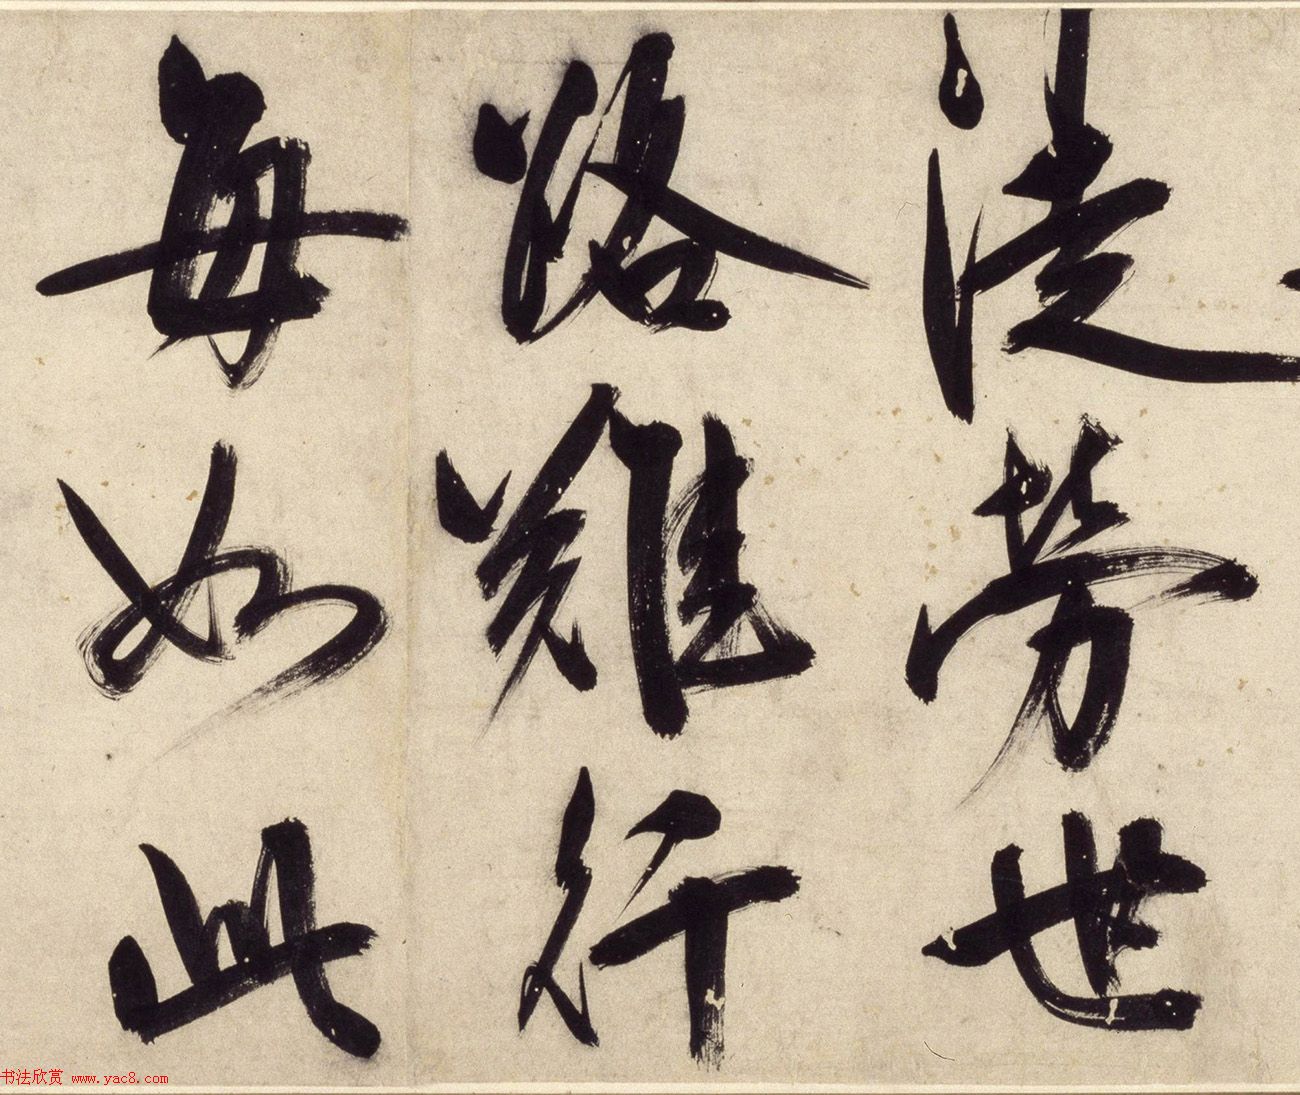 徒勞世
路難行
每如此
书法欣赏 www.yac8.com